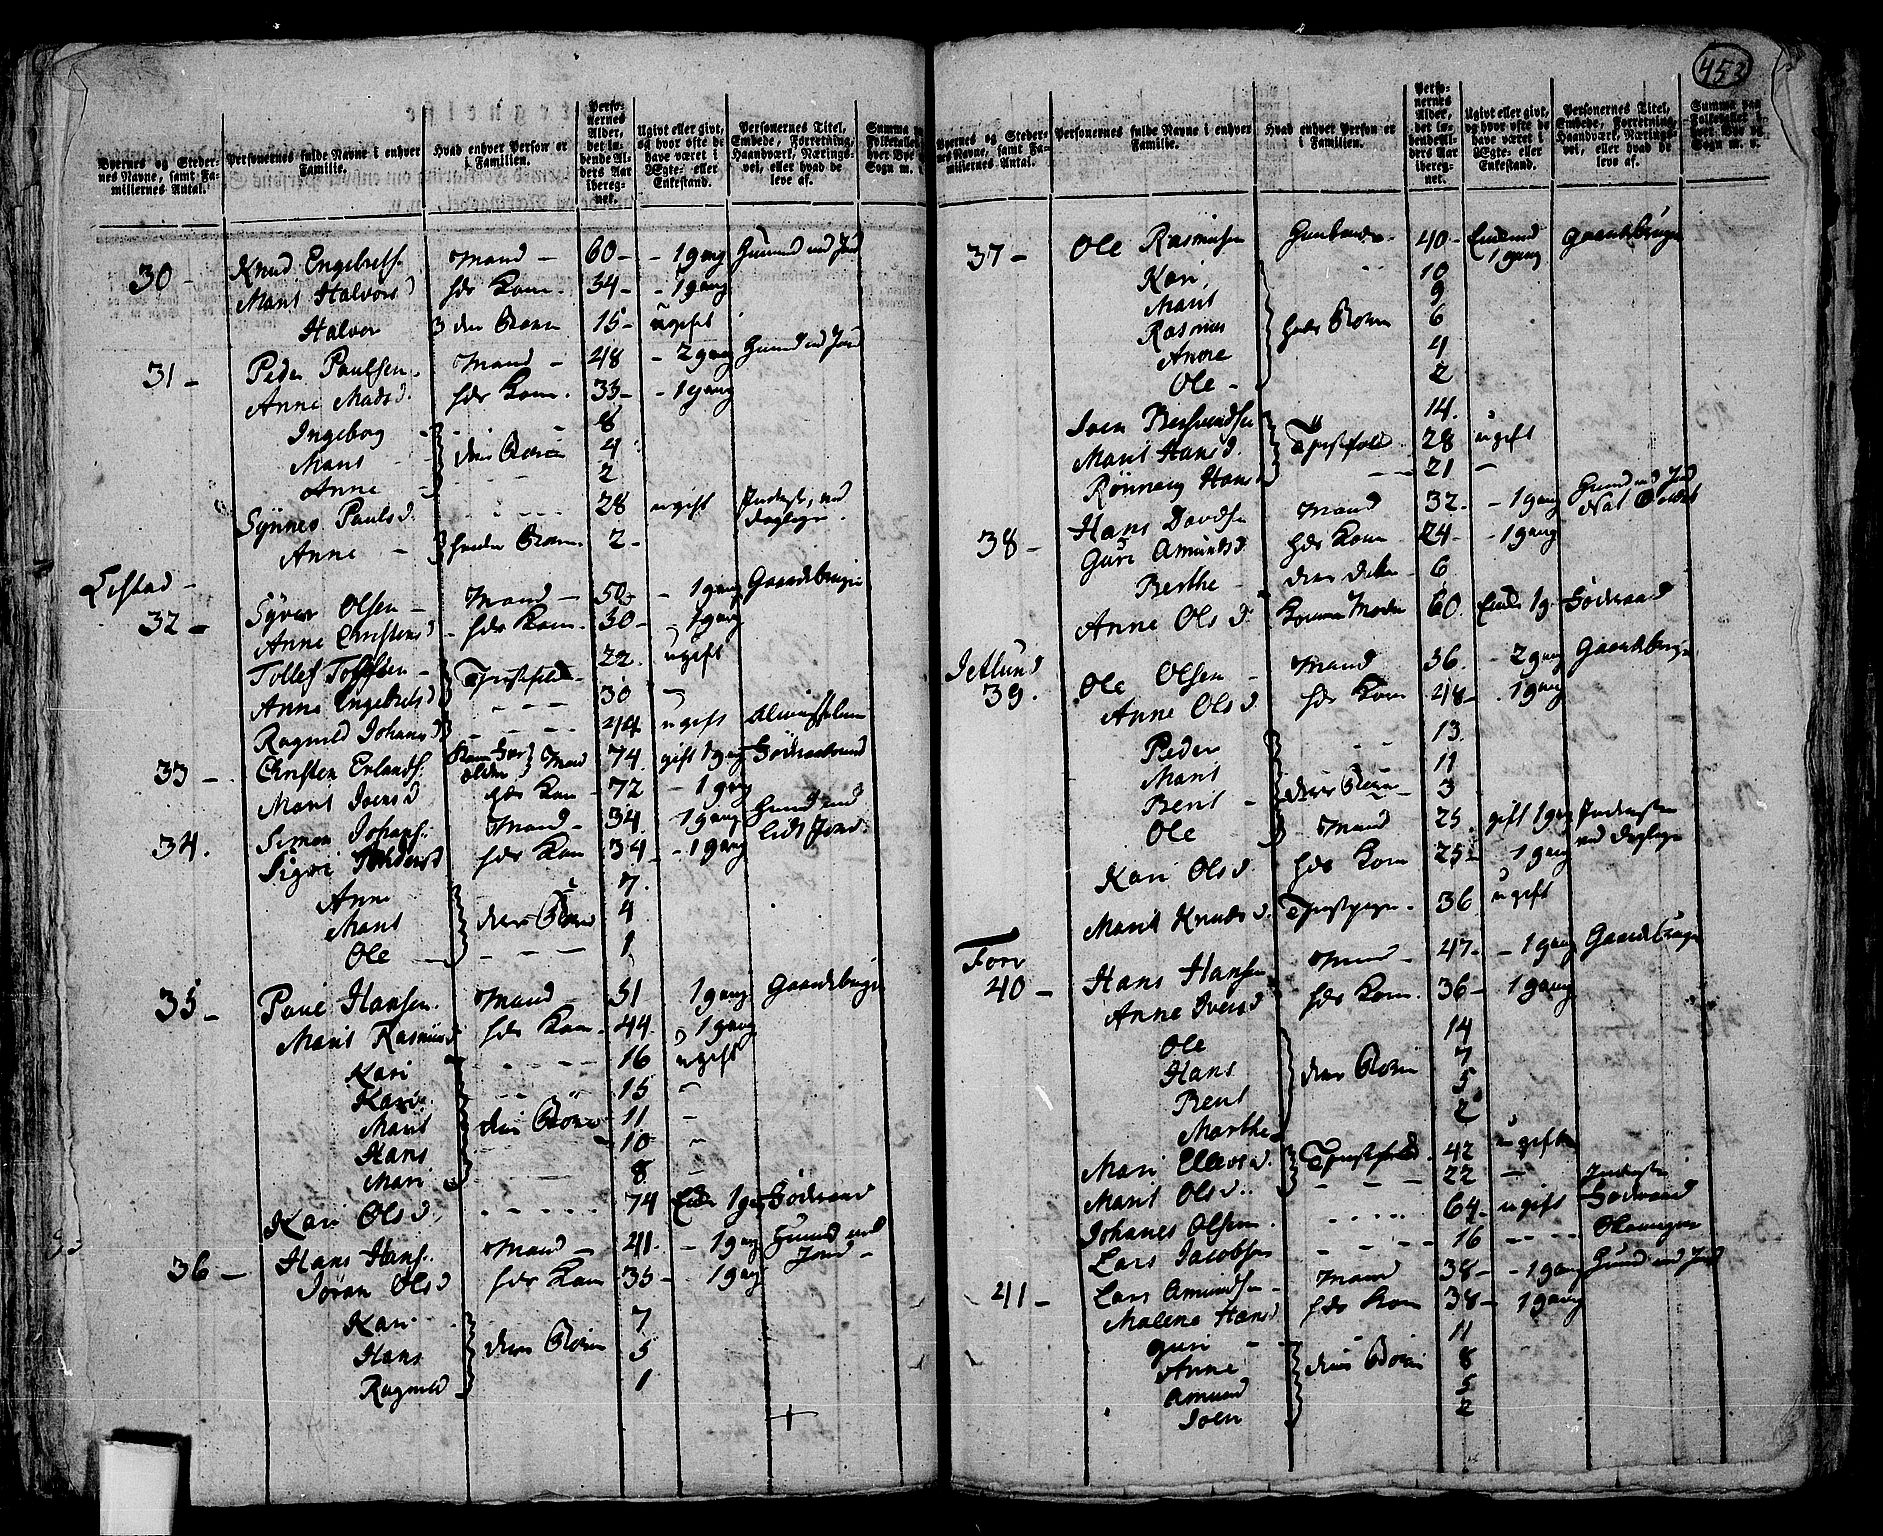 453
Byernes og Stedernes Navne, samt Familiernes Antal.
Personernes fulde Navne i enhver Familie.
Hvad enhver Person er i Familien.
Personernes Alder, det løbende Alders Aar iberegnet.
Ugivt eller givt, og hvor ofte de have været i Ægte- eller Enkestand.
Personernes Titel, Embede, Forretning, Haandværk, Næringsvei, eller hvad de leve af.
30 - Knud Engebrets. Mand - 60 - - 1 gang Huusmd md Jord
Marit Halvorsd hds Kone - 54 - - 1 gang
Halvor deres Barn 15 - ugift
31 - Peder Paulsen - Mand - 48 - 2 gang Huusmd md Jord
Anne Madsd. hds Kone. 33 - - 1 gang
Ingeborg 8
Marit - deres Børn 4
Anne - 2
Synnev Paulsd. 28 ugift Inderst, md Dagleye.
Anne - hendes Barn. 2 -
Listad -
32 - Syver Olsen - Mand - 50 - 1 gang Gaardbruger
Anne Christensd - hds Kone. 30 - - 1 gang
Tollef Tollefsen - Tienstfolk - 22. ugift
Anne Engebretsd 30 -
Ragnild Johansd 44 ugift
33 - Christen Erlands. Mand 74. gift 1 gang Føderaadmand
Marit Joensd hds Kone - 72 - 1 gang
34. Simen Johans. Mand - 34 - 1 gang Huusmd md lidt Jord.
Sigri hds Kone 34 - - 1 gang
Anne 7.
Marit deres Børn 4
Ole 1
35 - Povel Hansen. Mand - 51 1 gang Gaardbruger
Marit Rasmusd hds Kone - 44. 1 gang
Kari 16 ugift
Kari. 15 -
Marit deres Børn 11 -
Hans 10 -
Mari 8 -
Kari Olsd. 74 Enke 1 gang Føderaad
36 - Hans Hans. Mand - 41. - 1 gang Huusmd md Jord -
Jøran Olsd hds Kone 35 - 1 gang
Kari 7
Hans deres Børn 5
Ragnild 1
Byernes og Stedernes Navne, samt Familiernes Antal.
Personernes fulde Navne i enhver Familie.
Hvad enhver Person er i Familien.
Personernes Alder, det løbende Alders Aar iberegnet.
Ugivt eller givt, og hvor ofte de have været i Ægte- eller Enkestand.
Personernes Titel, Embede, Forretning, Haandværk, Næringsvei, eller hvad de leve af.
Summa paa Folketallet i hver Bye og Sogn m. v.
37 - Ole Rasmusen Huusbonde - 40 - Enkemd 1 gang Gaardbruger
Kari, 10
Marit 9
Rasmus hds Børn 6
Andre 4
Ole - 2
Joen 14.
Marit Hansd. Tienstfolk - 28 ugift
Rønnaug Hans 21 -
38 - Hans Davdsen Mand 32. - 1 gang Huusmd md Jord
Guri Amundsd. hds Kone 24 - - 1 gang
Berthe - deres Datter - 6
Anne Olsd. Konens Moder 60. Enke 1 g. Føderaad
Jetlund
39. Ole Olsen - Mand 36. - 2 gang Gaardbruger
Anne Olsd. hds Kone 48 - . 1 gang
Peder 13.
Marit 11
Berit - deres Børn 3
Ole Mand 25. gift 1 gang Inderst md Dagleye
Kari Olsd. hds Kone 25 - 1 gang
Marit Knudsd. Tienstpige. 36 ugift
Forr
40 - Hans Hansen Mand - 47 - - 1 gang Gaardbruger
Anne Iversd hds Kone. 36 - 1 gang
Ole 14
Hans deres Børn 7
Berit 5
Marthe 2
Mari Ellevsd. Tienstfolk. 42 ugift
Marit Olsd. 22 -
Johanes Olsen. 64 - ugift Inderst Føderaad
Lars Jacobsen 16
41 - Lars Amundsen - Mand 38 - - 1 gang Huusmd md Jord
Malene Hansd hds Kone 38 - 1 gang
Guri - 11
Anne deres Børn 8
Amund 5
Joen 2